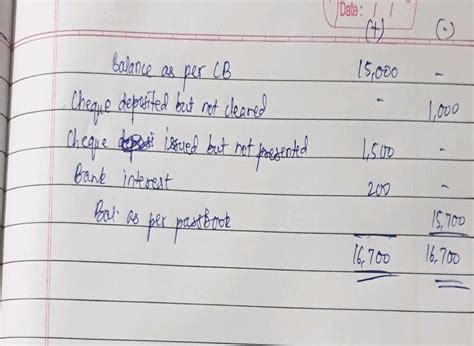 Date: / /
(+) (-)
Balance as per CB 15,000 -
Cheque deposited but not cleared - 1,000
Cheque issued but not presented 1,500 -
Bank interest 200 -
Bal. as per passbook 15,700
16,700 16,700